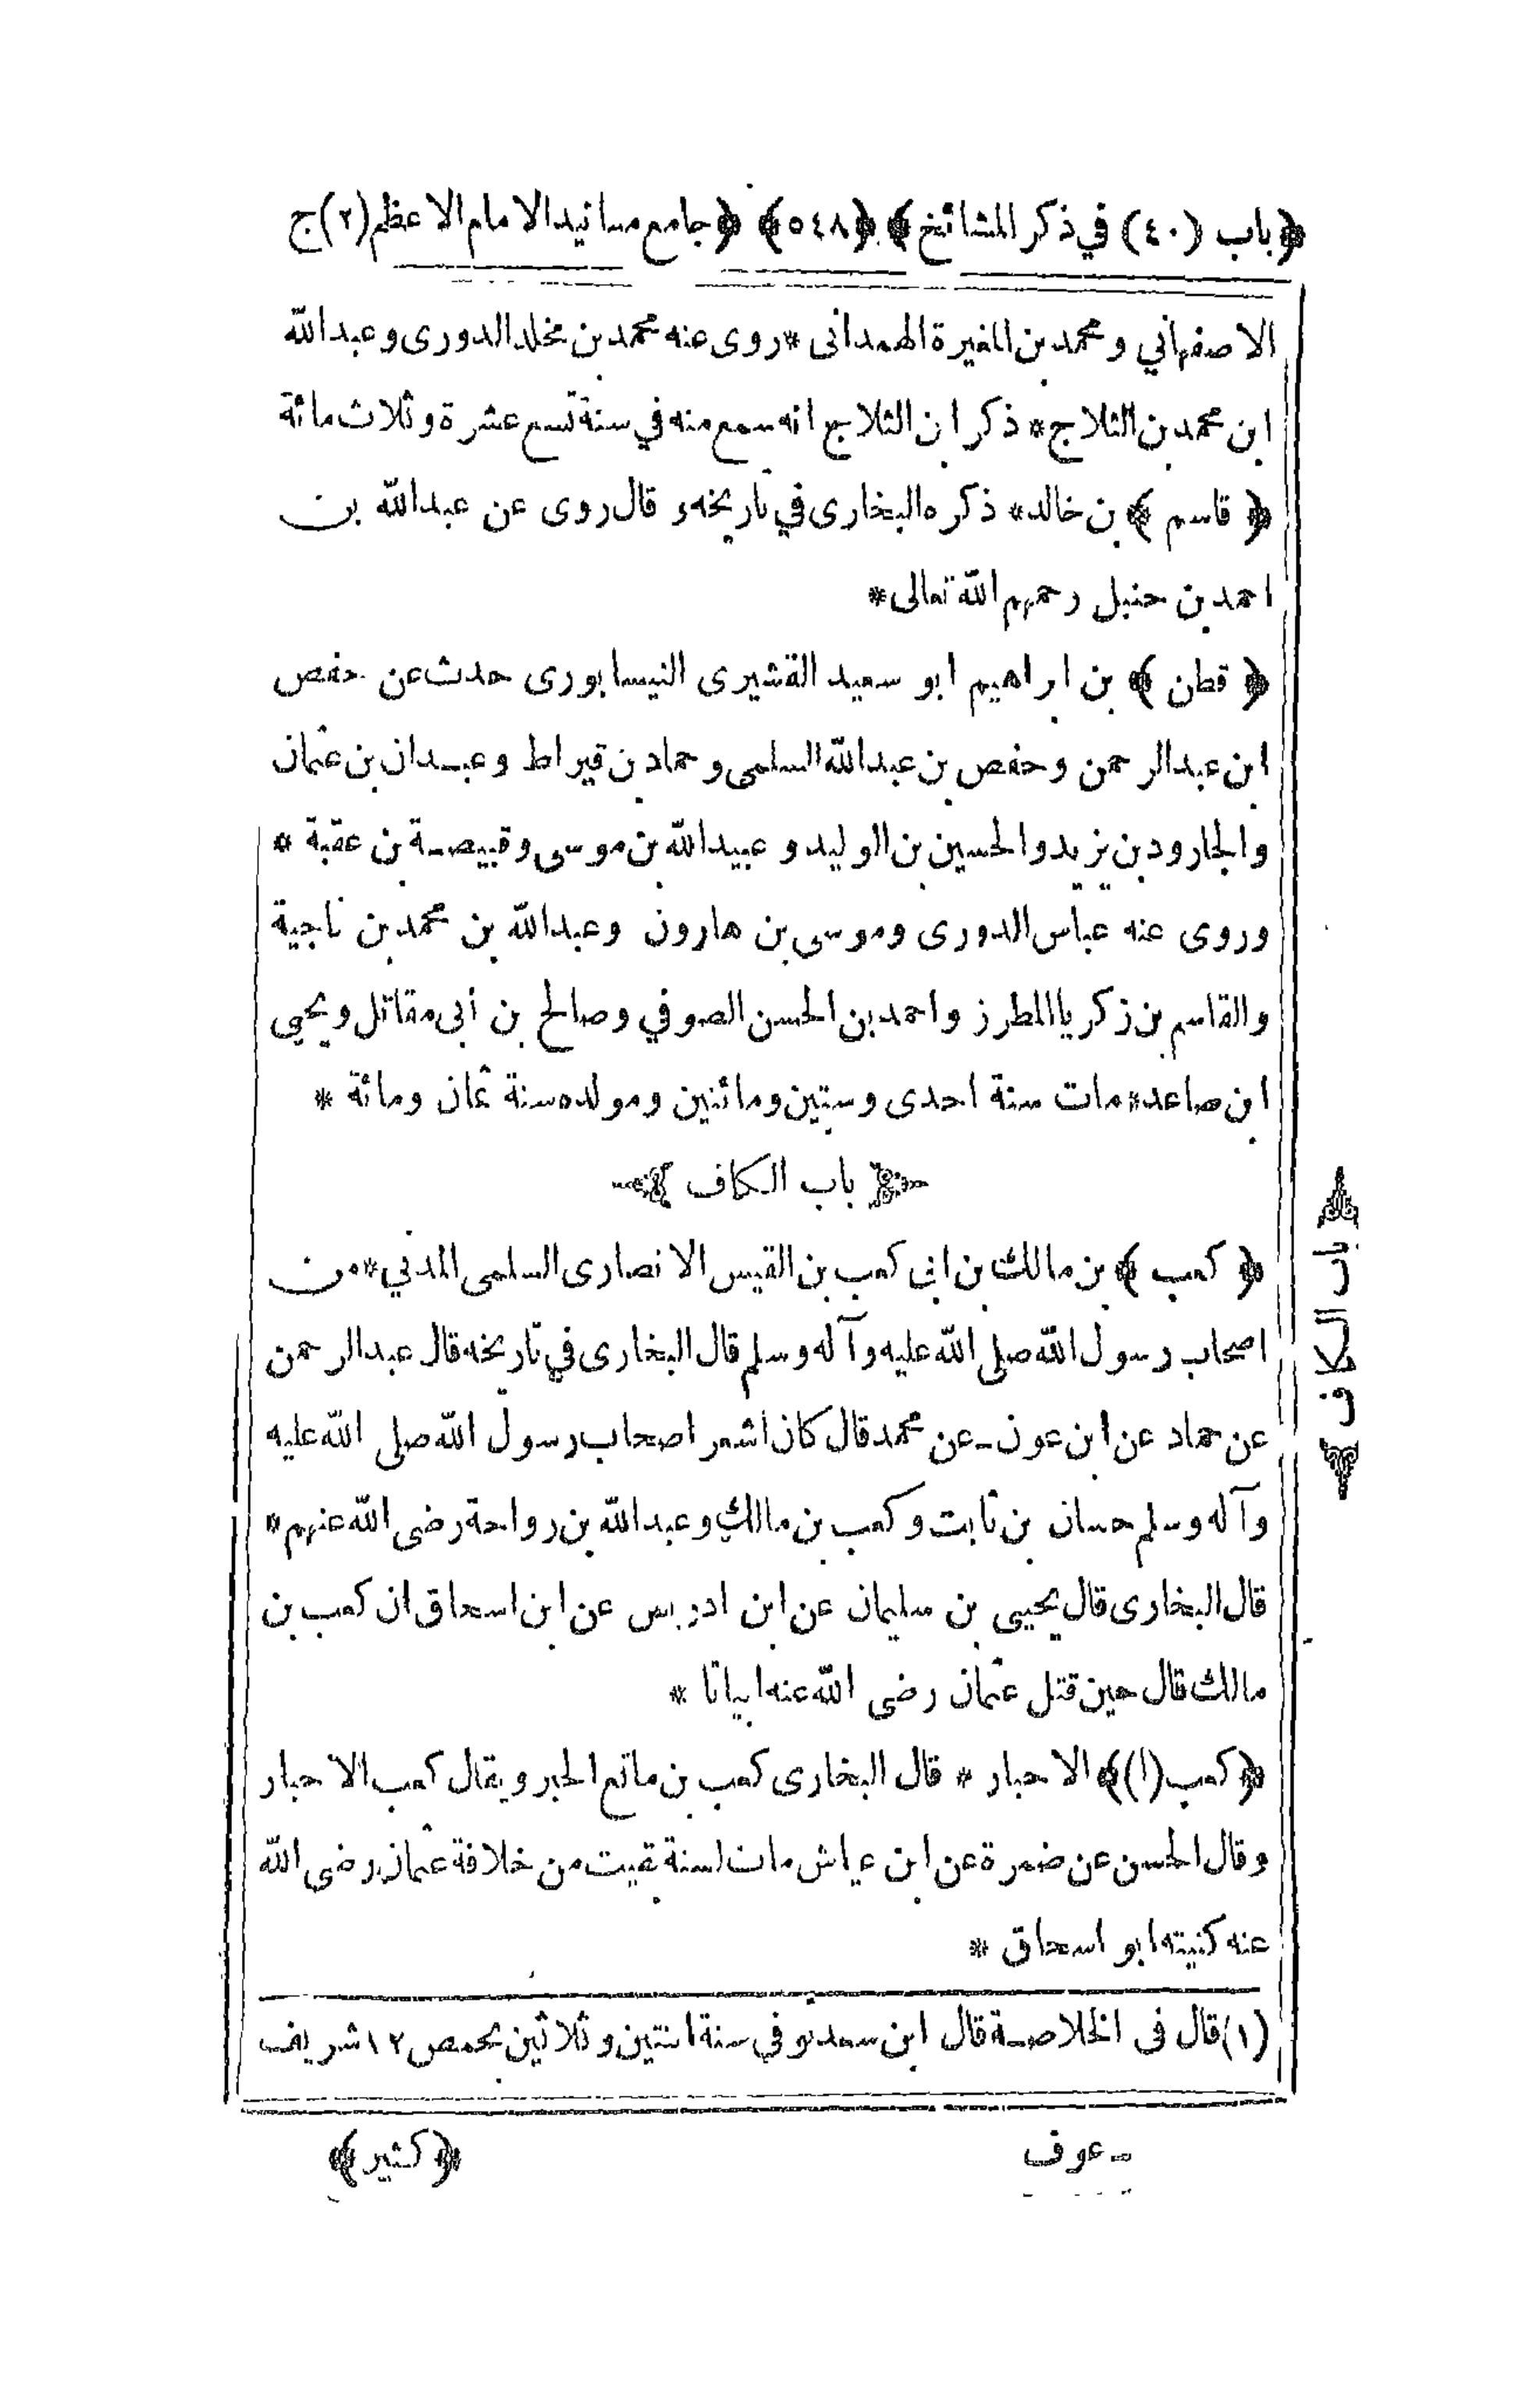 ﴿باب (٤٠) في ذكر المشائخ﴾ ﴿٥٤٨﴾ ﴿جامع مسانيد الامام الاعظم (٢) ج
الاصفهاني ومحمد بن المغيرة الهمدانى * روى عنه محمد بن مخلد الدورى وعبد الله
ابن محمد بن الثلاج * ذكر ابن الثلاج انه سمع منه في سنة تسع عشرة وثلاث مائة
﴿ قاسم ﴾ بن خالد * ذكره البخارى في تاريخه وقال روى عن عبد الله بن
احمد بن حنبل رحمهم الله تعالى *
﴿ قطن ﴾ بن ابراهيم ابو سعيد القشيرى النيسابورى حدث عن حفص
ابن عبد الرحمن وحفص بن عبد الله السلمى وحماد بن قيراط وعبدان بن عثمان
والجارود بن يزيد والحسين بن الوليد وعبيد الله بن موسى وقبيصة بن عقبة *
وروى عنه عباس الدورى وموسى بن هارون وعبد الله بن محمد بن ناجية
والقاسم بن زكريا المطرز واحمد بن الحسن الصوفي وصالح بن أبى مقاتل ويحيى
ابن صاعد * مات سنة احدى وستين ومائتين ومولده سنة ثمان ومائة *
باب الكاف
﴿ كعب ﴾ بن مالك بن ابى كعب بن القيس الانصارى السلمى المدني * من
اصحاب رسول الله صلى الله عليه وآله وسلم قال البخارى في تاريخه قال عبد الرحمن
عن حماد عن ابن عون ـ عن محمد قال كان اشعر اصحاب رسول الله صلى الله عليه
وآله وسلم حسان بن ثابت وكعب بن مالك وعبد الله بن رواحة رضى الله عنهم *
قال البخارى قال يحيى بن سليمان عن ابن ادريس عن ابن اسحاق ان كعب بن
مالك قال حين قتل عثمان رضى الله عنه ابياتا *
﴿كعب (١)﴾ الاحبار * قال البخارى كعب بن ماتع الحبر ويقال كعب الاحبار
وقال الحسن عن ضمرة عن ابن عياش مات لسنة بقيت من خلافة عثمان رضى الله
عنه كنيته ابو اسحاق *
(١) قال فى الخلاصة قال ابن سعد توفي سنة اثنتين وثلاثين بحمص ١٢ شريف
ـ عوف
﴿كثير﴾
باب الكاف